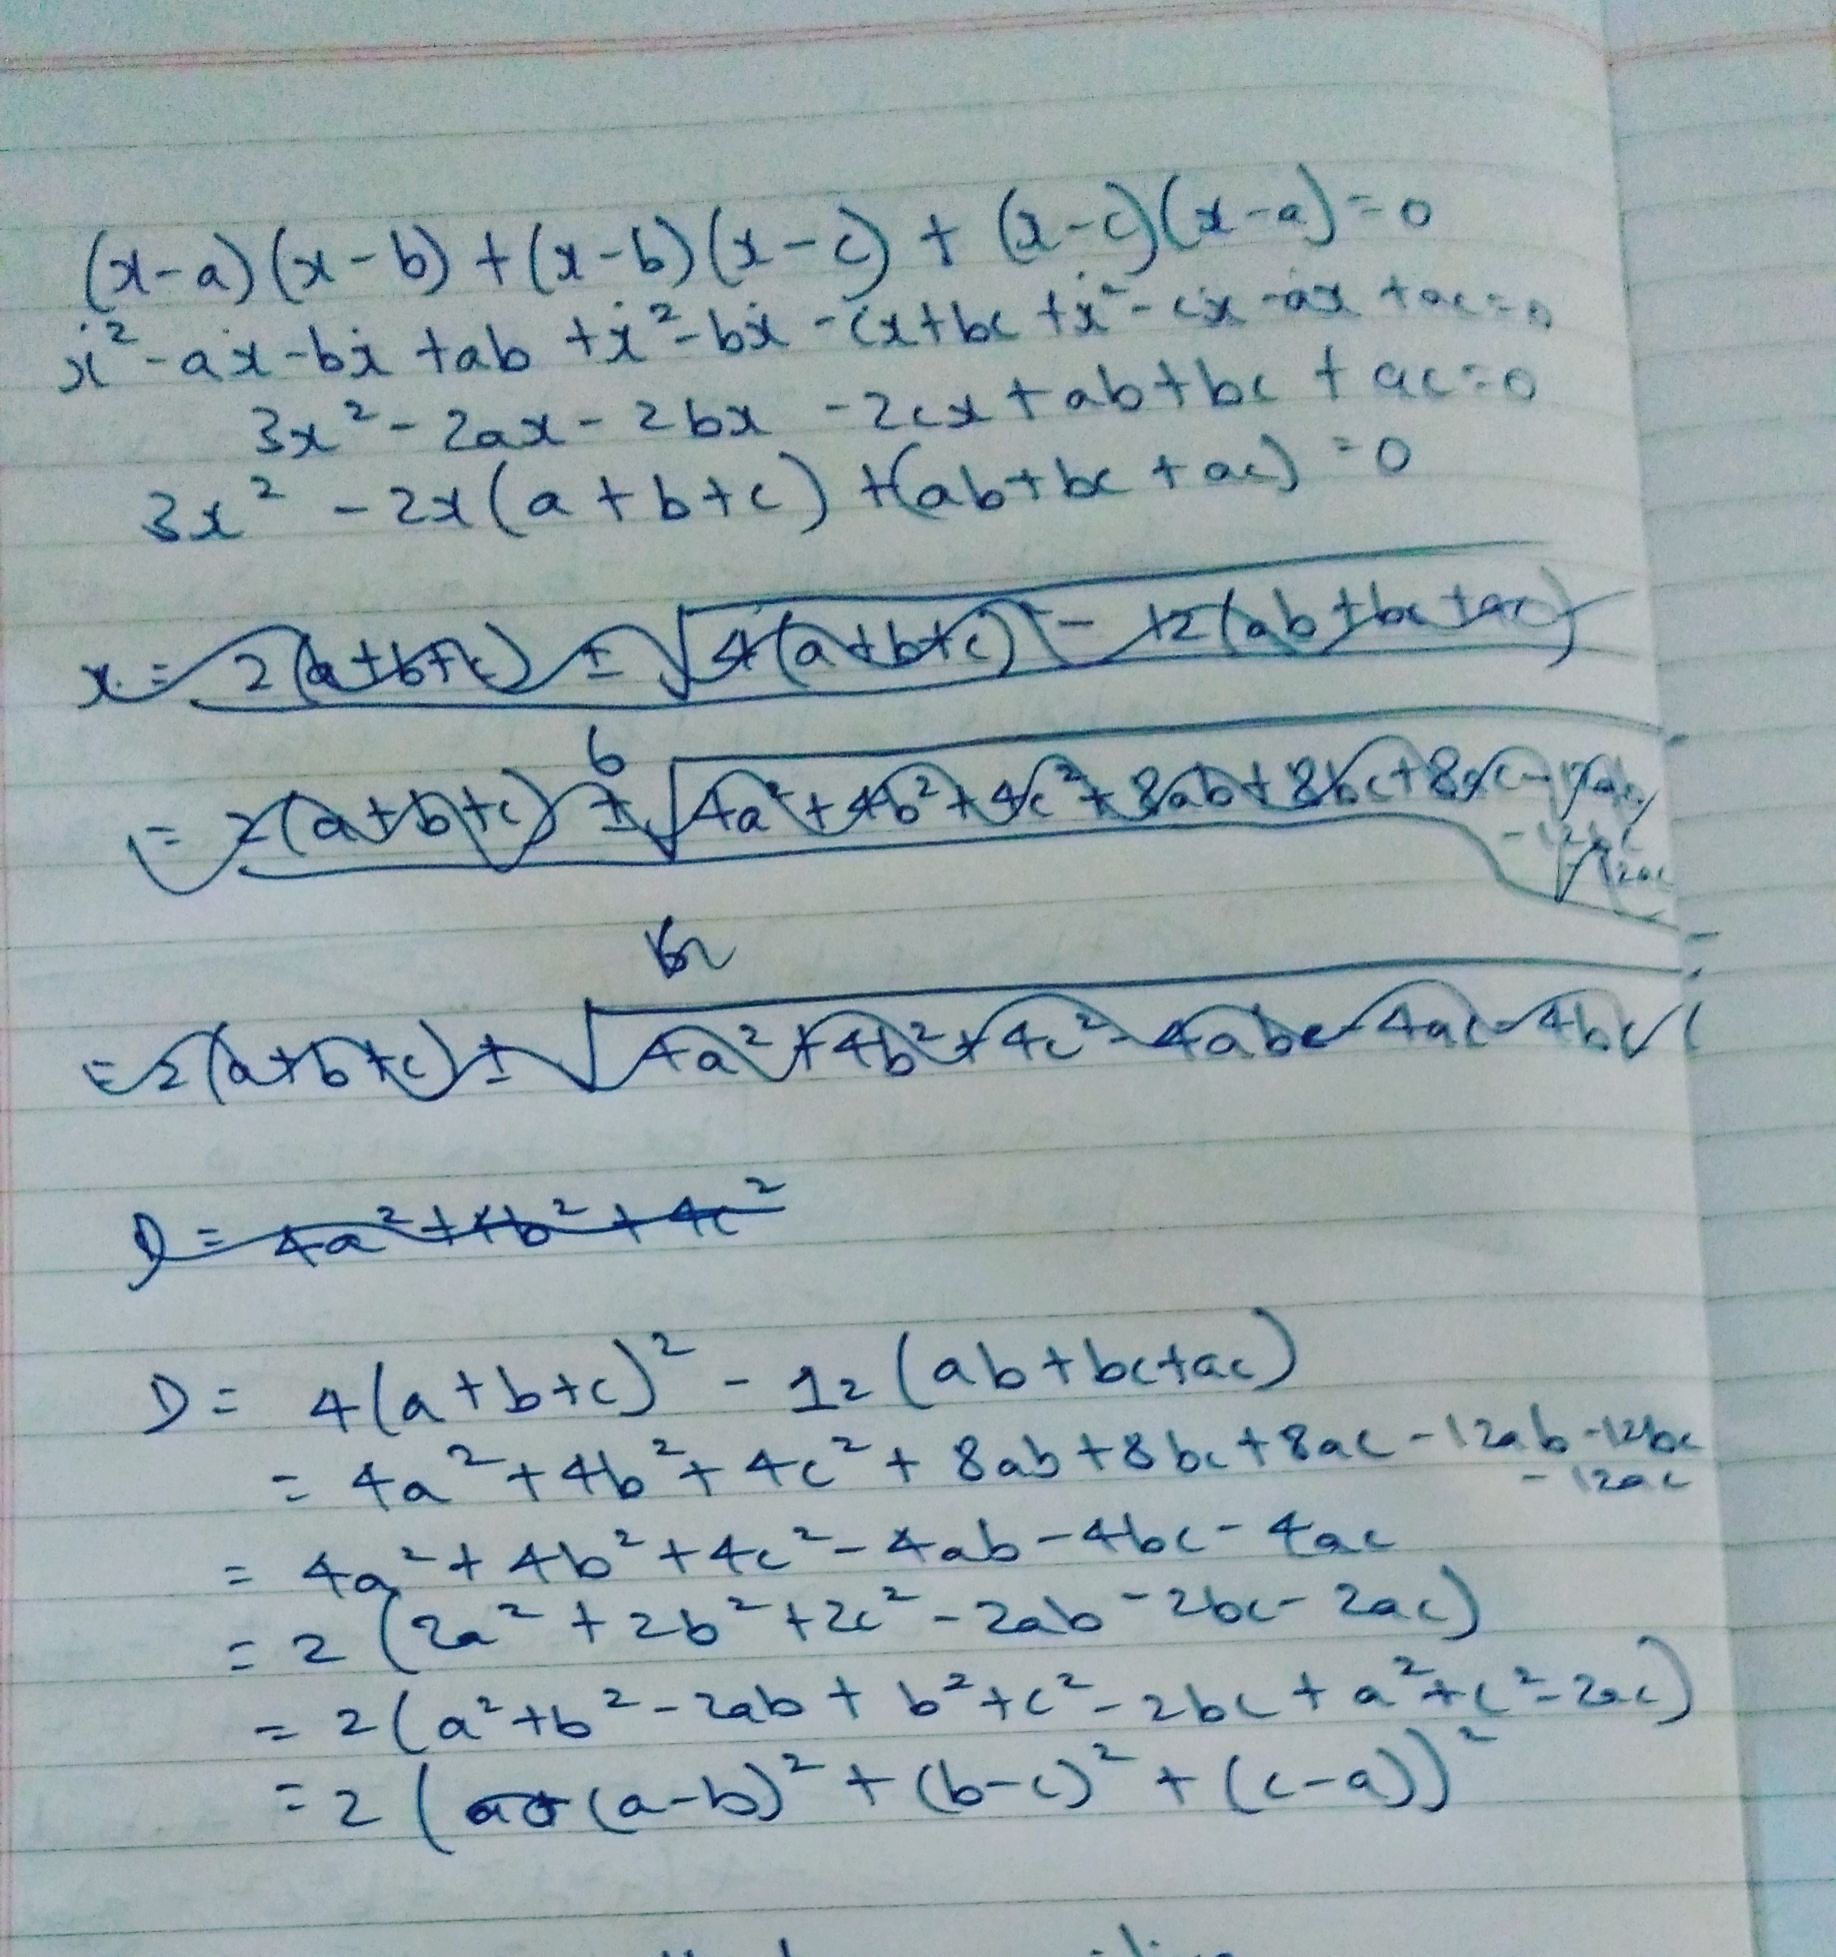 (x-a)(x-b)+(x-b)(x-c)+(x-c)(x-a)=0
x²-ax-bx+ab+x²-bx-cx+bc+x²-cx-ax+ac=0
3x²-2ax-2bx-2cx+ab+bc+ac=0
3x²-2x(a+b+c)+(ab+bc+ac)=0
x=2(a+b+c)±√4(a+b+c)²-12(ab+bc+ac)
6
=2(a+b+c)±√4a²+4b²+4c²+8ab+8bc+8ac-12ab
-12bc
-12ac
=2(a+b+c)±√4a²+4b²+4c²-4ab-4ac-4bc
D=4a²+4b²+4c²
D=4(a+b+c)²-12(ab+bc+ac)
=4a²+4b²+4c²+8ab+8bc+8ac-12ab-12bc
-12ac
=4a²+4b²+4c²-4ab-4bc-4ac
=2(2a²+2b²+2c²-2ab-2bc-2ac)
=2(a²+b²-2ab+b²+c²-2bc+a²+c²-2ac)
=2((a-b)²+(b-c)²+(c-a))²